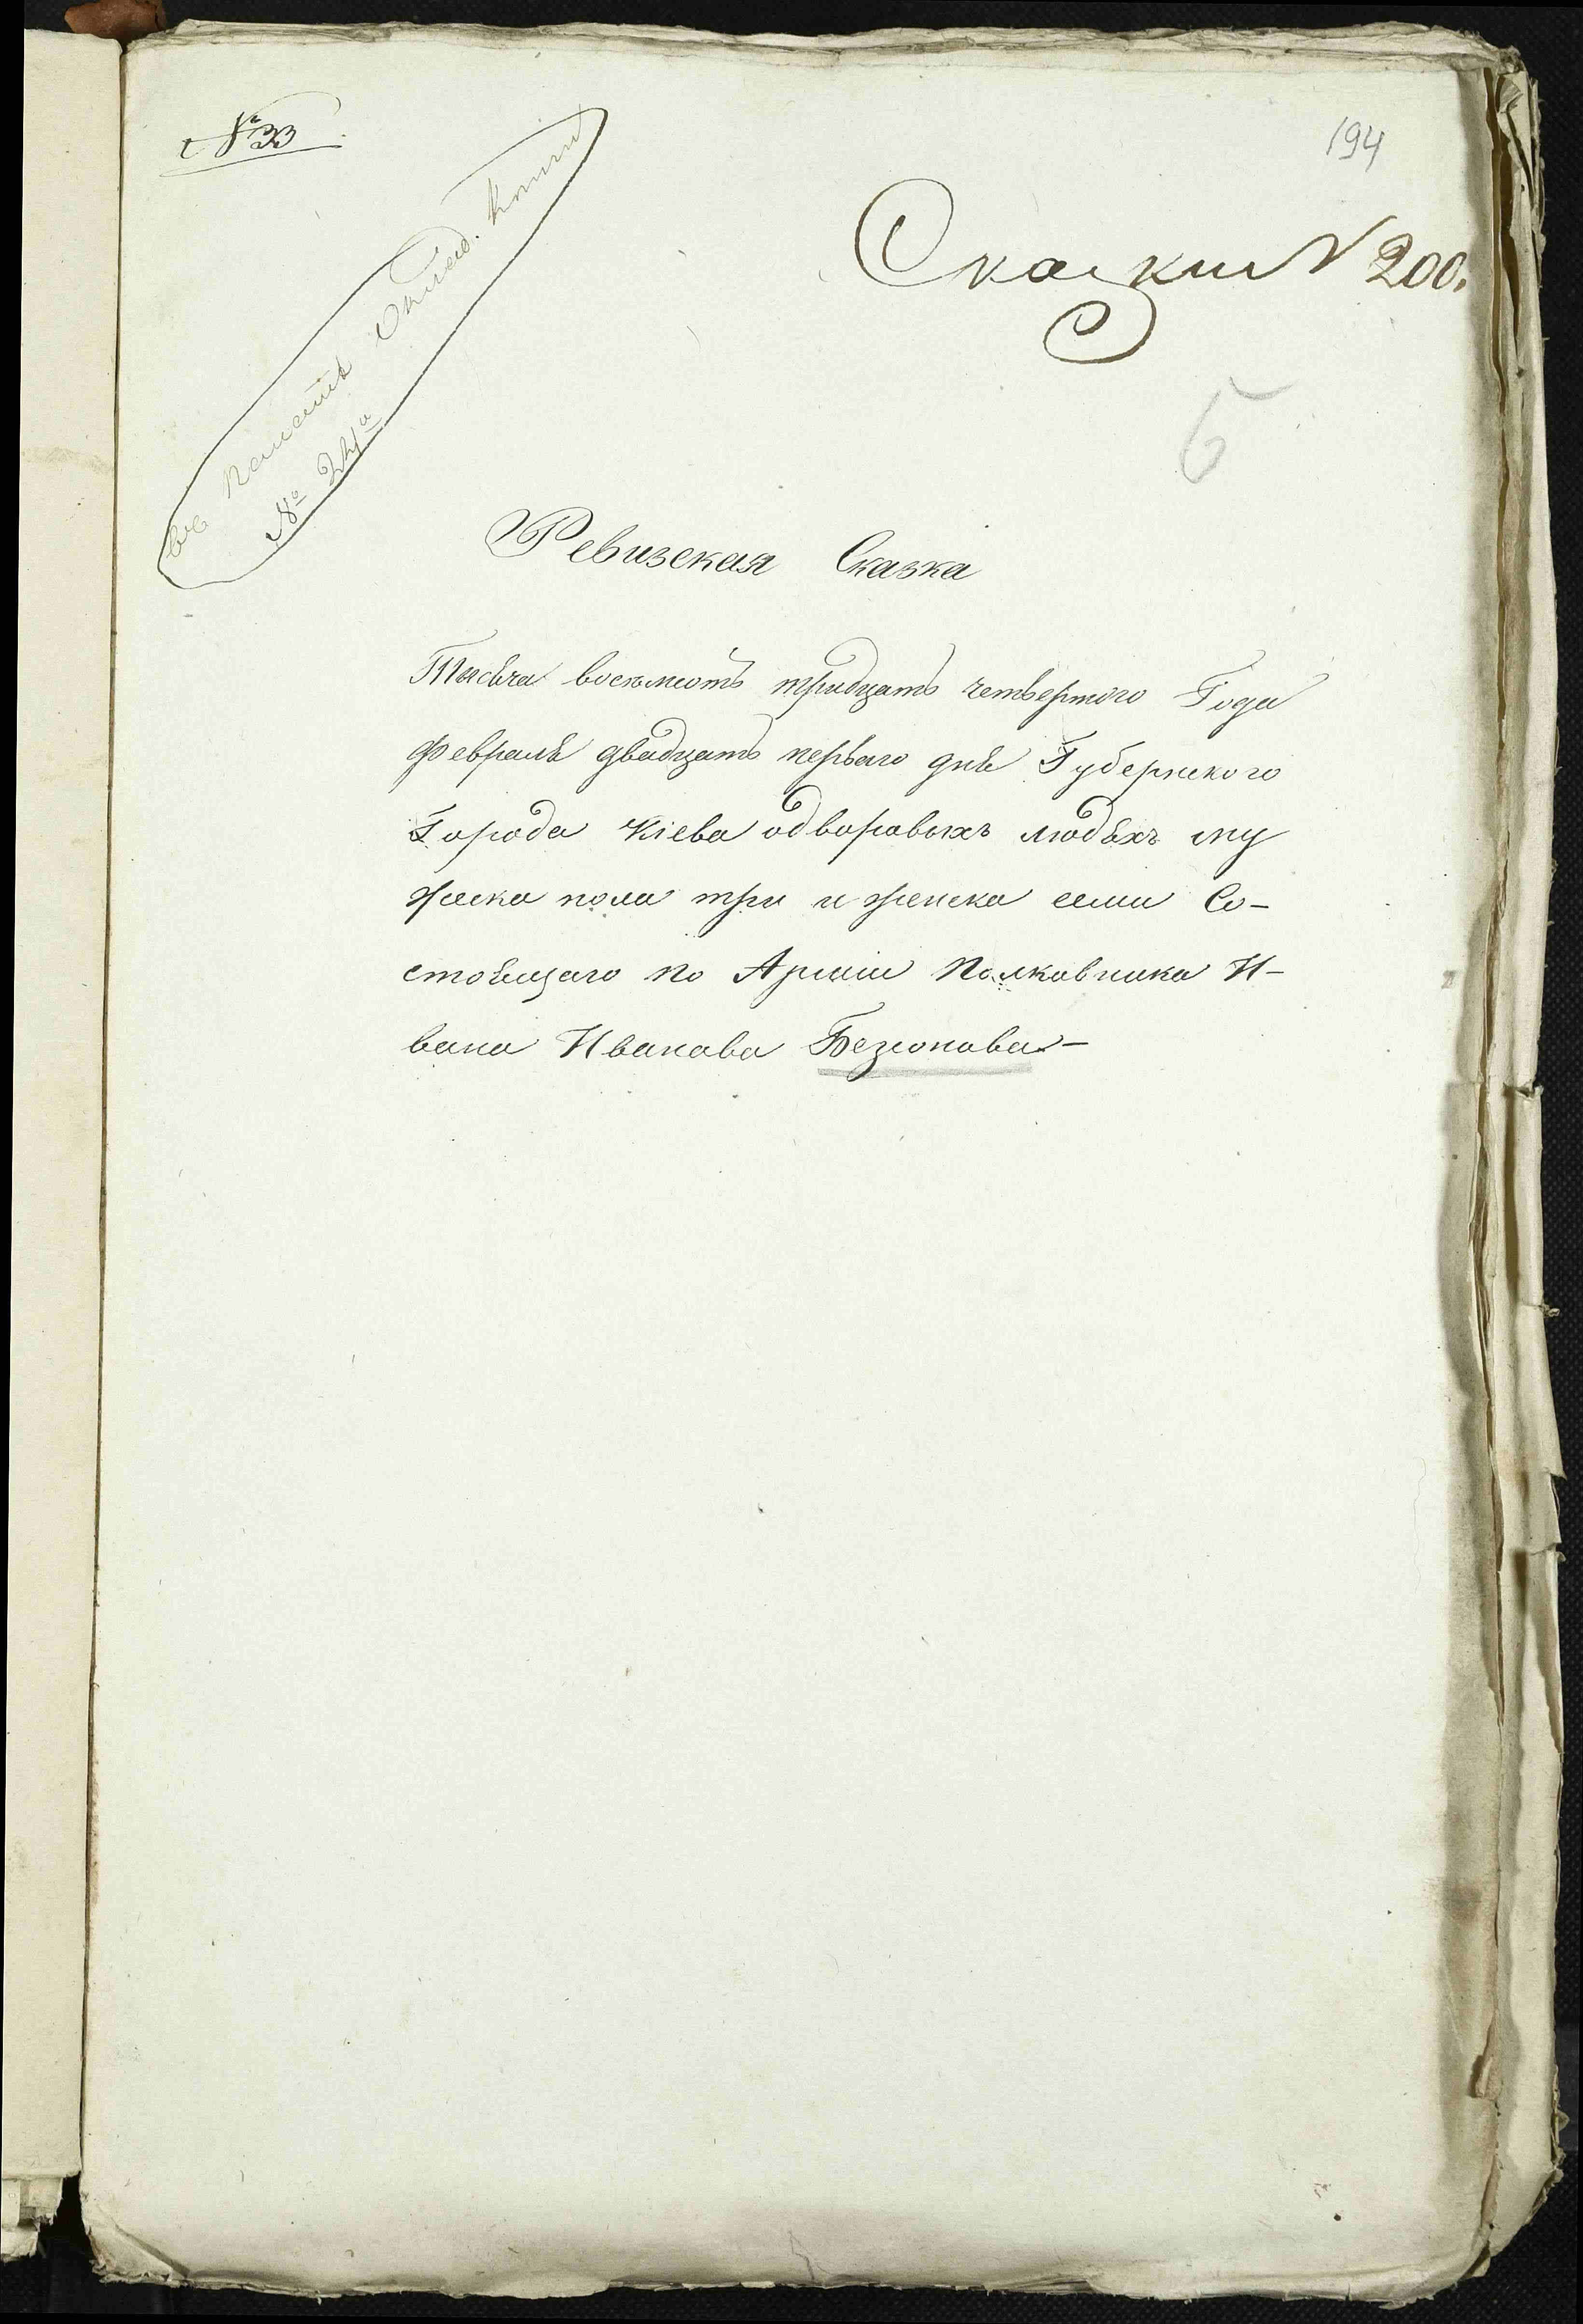 № 33
194
Сказки N 200.
5
№ 241а
Ревизская Сказка
Тысѣча восемьсотъ тридцать четвертого Года
февралѣ двадцать первого днѣ Губернского
Города Кіева одворовыхъ людѣхъ му
жеска пола три и женска семи Со-
стоѣщаго по Арміи Полковника И-
вана Иванова Безсонова-